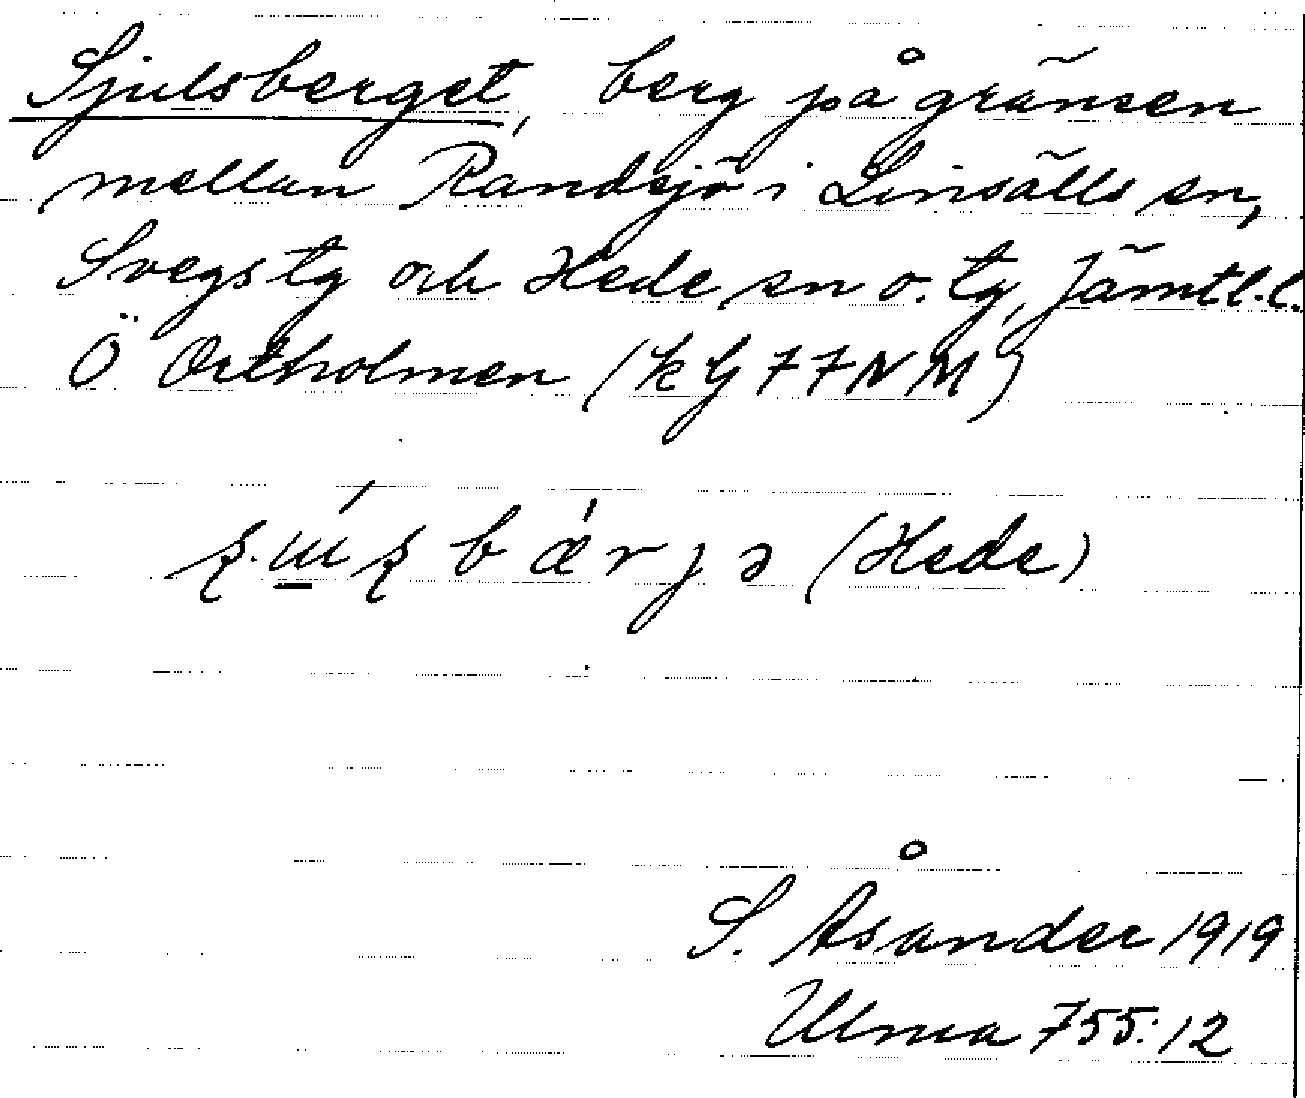 Sjulsberget, berg på gränsen
mellan Randsjö i Linsälls sn,
Svegs tg och Hede sn o. tg, Jämtl. l.
Ö Orrholmen (k G 77 NM)
bǽrjə (Hede)
S. Åsander 1919
Ulma 755:12